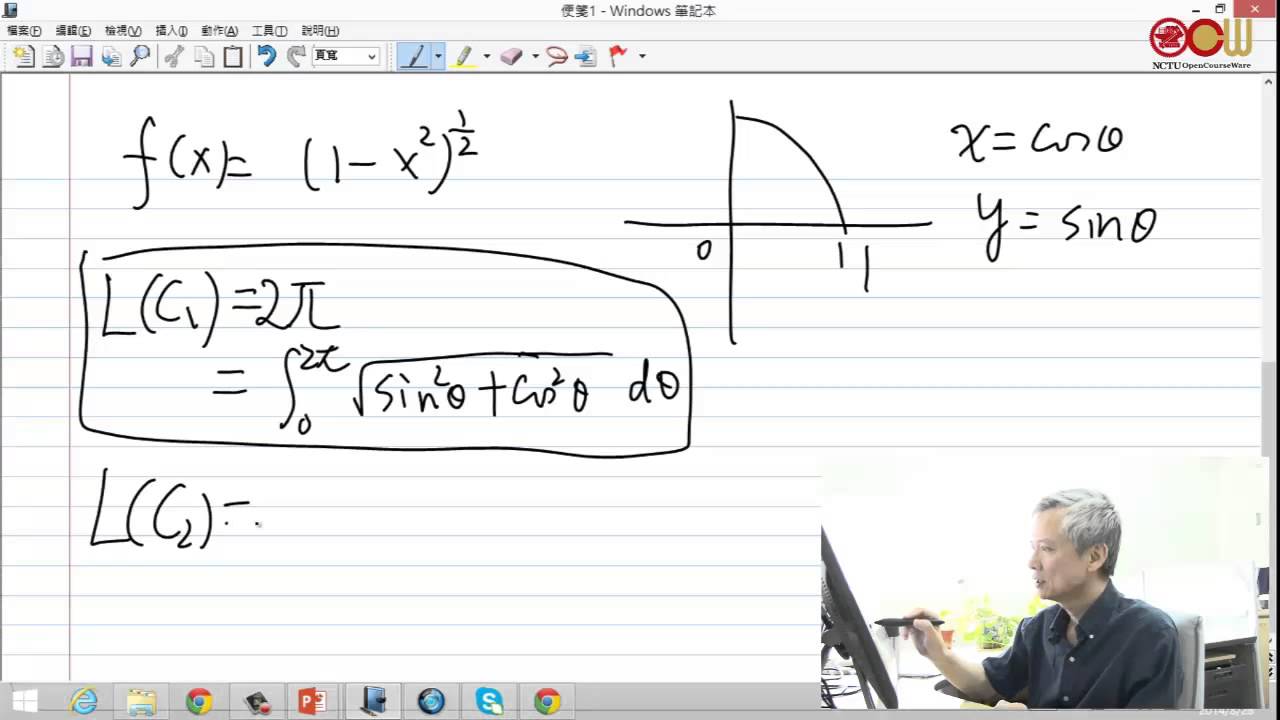 便箋1 - Windows 筆記本
檔案(F) 編輯(E) 檢視(V) 插入(I) 動作(A) 工具(T) 說明(H)
頁寬
NCTU OpenCourseWare
f(x)= (1-x²)^{1/2}
x=cosθ
y=sinθ
0 1 1
L(C₁)=2π
= ∫₀^{2π} √(sin²θ+cos²θ) dθ
L(C₂)=